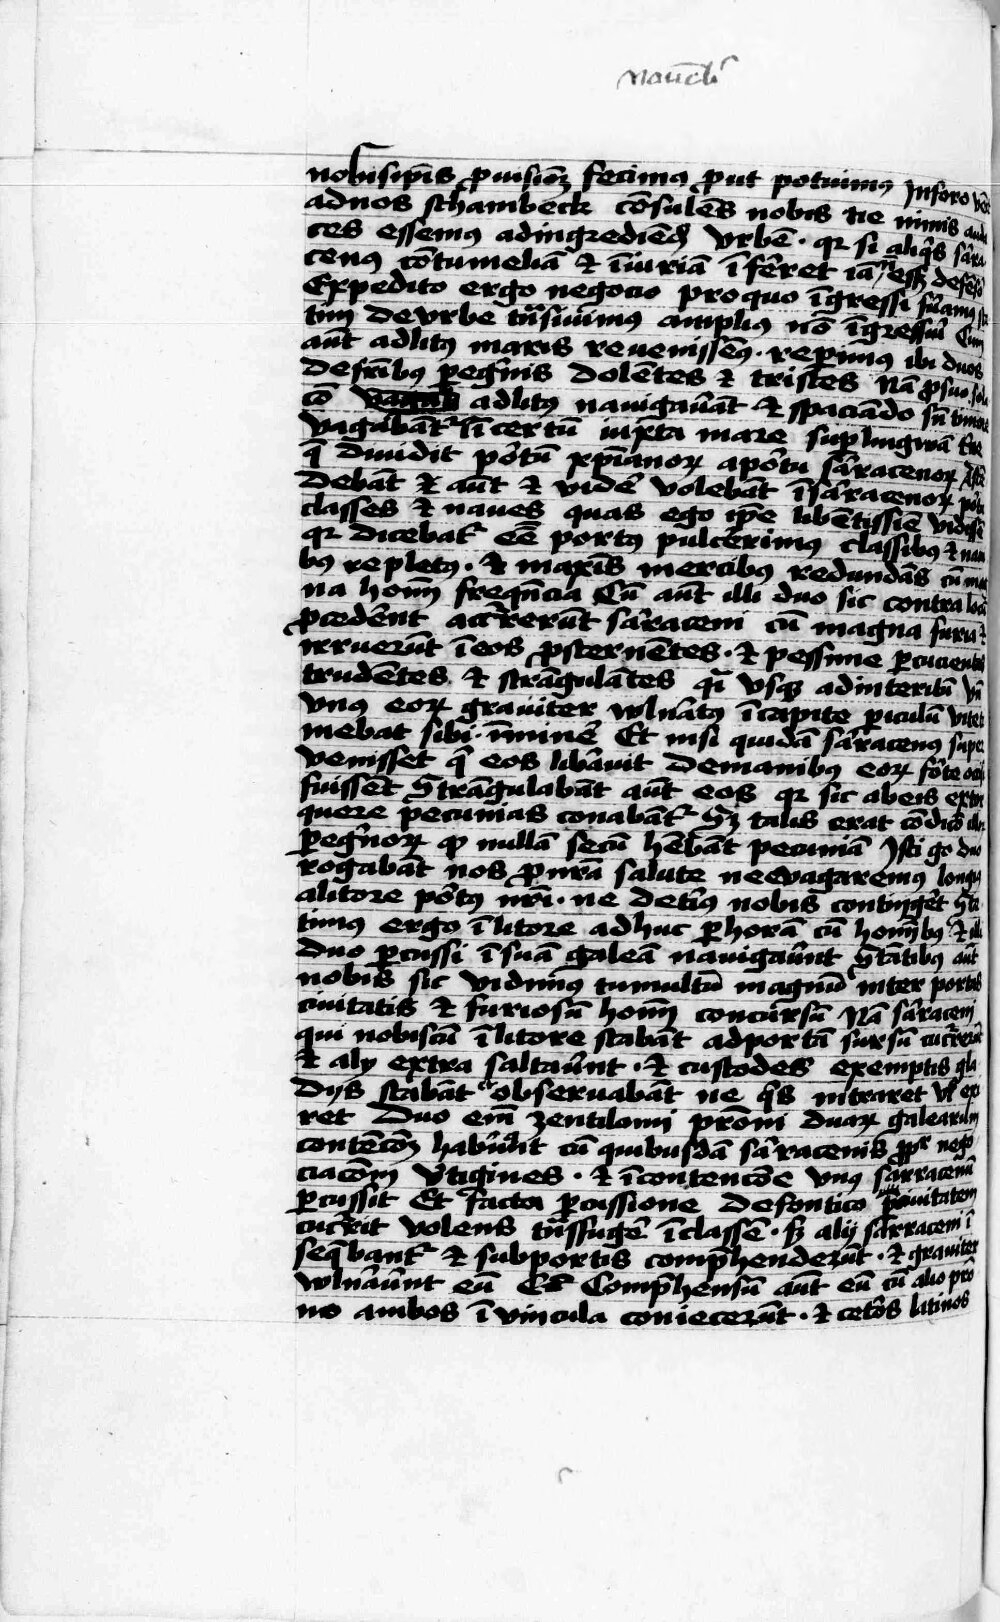 nobisipīs ꝓuisionē fecimꝰ ꝓut potuimꝰ Inforo
adnos schambeck cōsulēs nobis ne nimis
ces essemꝰ adingrediēdū vrbē · qꝛ si aliqͥs sāra
cenꝰ cōtumeliā ⁊ iniuriā īferet iā nō esset defēsio
Expedito ergo negocio proquo īgressi fueramꝰ
tim de vrbe trāsiuimꝰ ampliꝰ nō īgressuri Cum
aūt adlitꝰ maris reuenissemꝰ · reperimꝰ ibi duos
defrībꝰ peregrīnis dolētes ⁊ tristes Nā ꝓ suo sola
cō adlitꝰ nauigauāt ⁊ spaciādo sine timore
vagabātʳ īcertū iuxta mare suplinguā terre
q̄ diuidit portū xp̄ianoꝝ aportu sāracenoꝝ
debāt aūt ⁊ vidē volebāt īsāracenoꝝ portu
classes ⁊ naues quas ego ip̄e libētissīe vidissē
qꝛ dicebatʳ eē portꝰ pulcerrimꝰ classibꝰ ⁊ naui
bꝰ repletꝰ · ⁊ maxīs mercibꝰ redundās cū mag
na homī freqn̄cia Cū aūt illi duo sic contra loca
ꝓcedēnt accurrerūt sāraceni cū magna furia ⁊
irruerūt īeos ꝓsternētes · ⁊ pessime ꝑcucientes
trudētes ⁊ strāgulātes q̄i vsqꝫ adinteritū vn̄
vnꝰ eoꝝ grauiter vvlnātꝰ īcapite periculū vite ti
mebat sibi īminē Et nisi quidā sāracenꝰ super
venisset q̄ eos libāuit demanibꝰ eoꝝ forte occisi
fuissēt Strāgulabāt aūt eos qꝛ sic abeis extor
quere pecunias conabātʳ Sꝫ talis erat cōdicō illoꝝ
peregrinoꝝ ꝙ nullā secū hēbāt pecuniā Isti go duo
rogabāt nos ꝓ nrā salute ne evagaremꝰ longiꝰ
alitore portꝰ nrī · ne deterius nobis contingēt Ste
timus ergo īlitore adhuc per horā cū hominibꝰ ⁊ illi
duo percussi īsuā galeā nauigauēnt Stātibꝰ aūt
nobis sic vidimꝰ tumultū magnū inter portas
ciuitatis ⁊ furiosū homī concursū Nā sāraceni
qui nobiscū īlitore stabāt adportā sursū cucurrerūt
⁊ alij extra saltauēnt · ⁊ custodes exemptis gla
dijs stabāt ⁊ obseruabāt ne qͥs intraret vel exi
ret Duo em̄ zentilomi prōni duaꝝ galearum
contēcōꝫ habuērūt cū quibusdā sāracenis ꝓpter nego
ciacōem vitigines · ⁊ īcontencōe vnꝰ sarracenū
percussit Et facta percussione defontico per ciuitatem
cucurrit volens trāsfugē īclassē · sꝫ alij sarraceni ī
seq̄bantʳ ⁊ subportis compr̄henderūt · ⁊ grauiter
vvlnauēnt eū Compr̄hensū aūt eū cū alio prō
no ambos ī vincula coniecerūt · ⁊ cetōs latinos